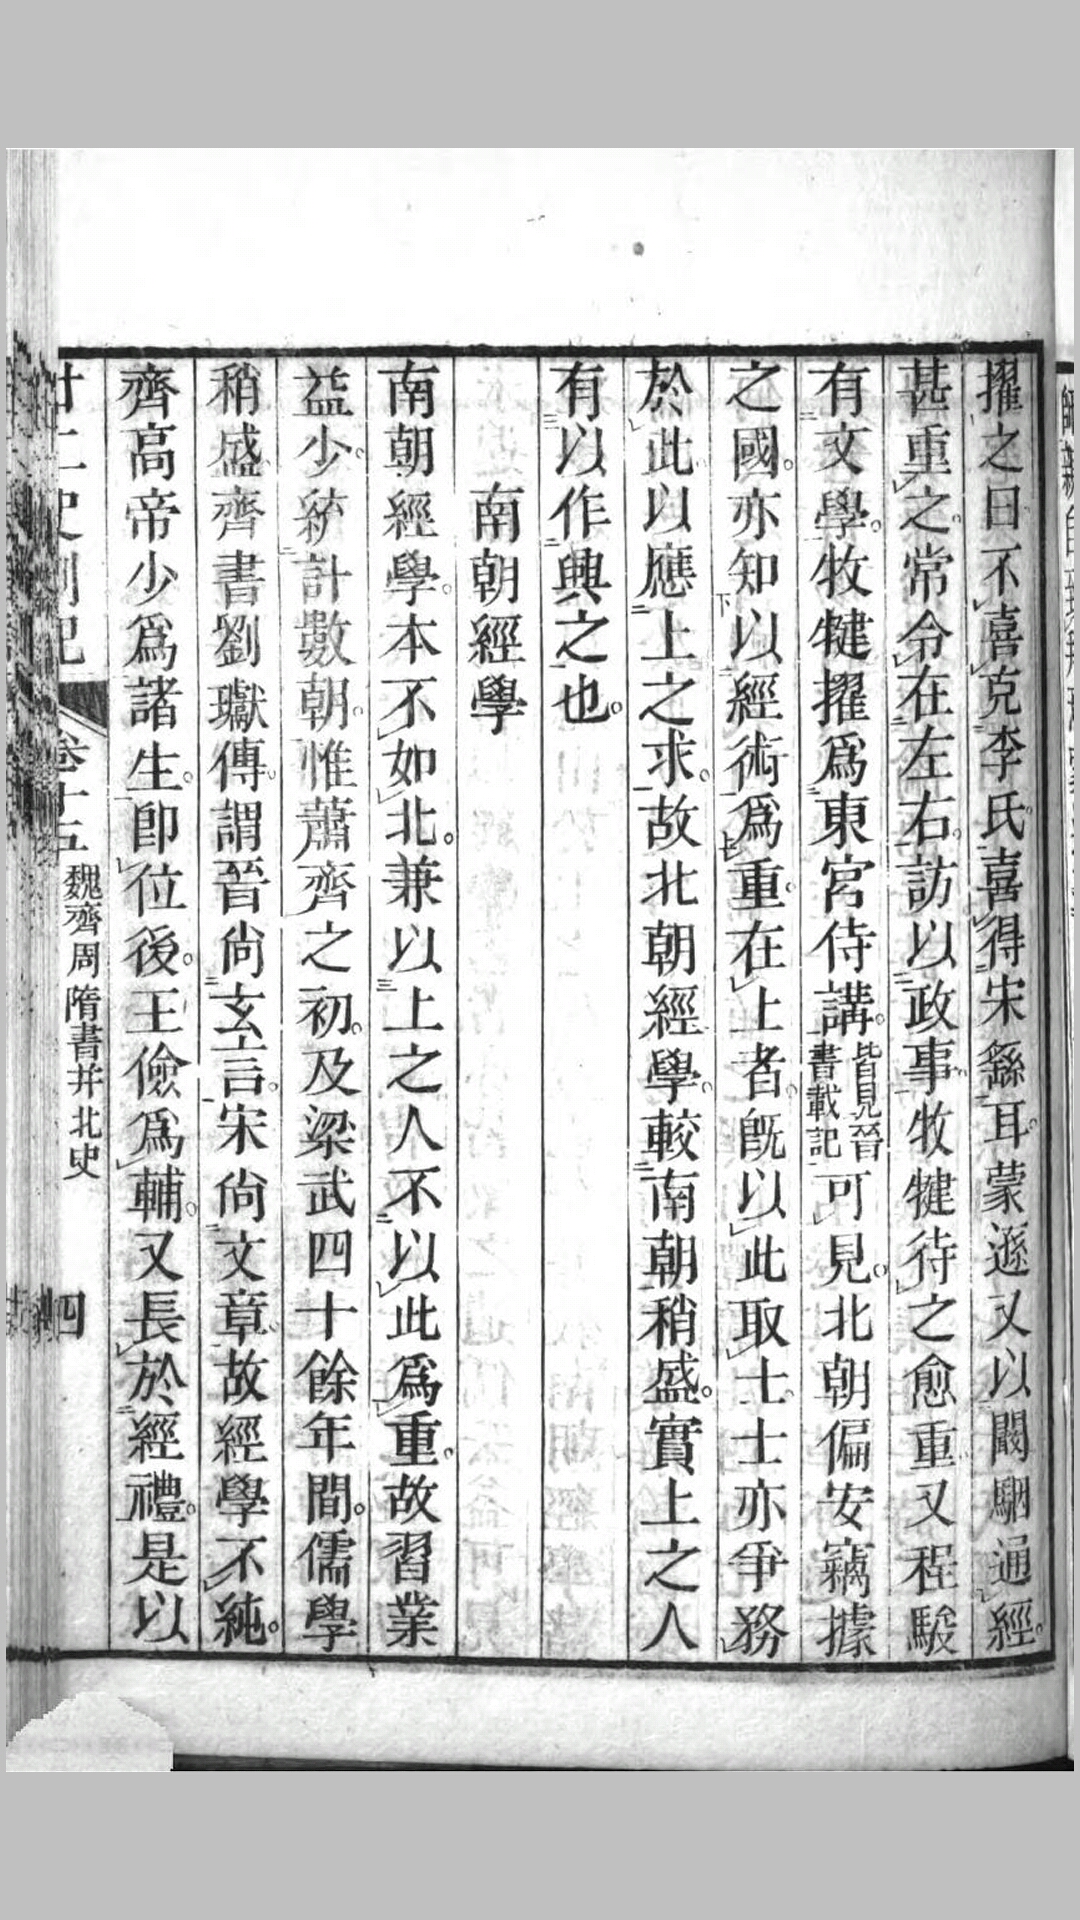 擢之曰不喜克李氏喜得宋繇耳蒙遜又以闞駰通經
甚重之常令在左右訪以政事牧犍待之愈重又程駿
有文學牧犍擢爲東宮侍講皆見晉書載記可見北朝偏安竊據
之國亦知以經術爲重在上者旣以此取士士亦爭務
於此以應上之求故北朝經學較南朝稍盛實上之人
有以作興之也
南朝經學
南朝經學本不如北兼以上之人不以此爲重故習業
益少統計數朝惟蕭齊之初及梁武四十餘年間儒學
稍盛齊書劉瓛傳謂晉尙玄言宋尙文章故經學不純
齊高帝少爲諸生卽位後王儉爲輔又長於經禮是以
廿二史劄記 卷十五 魏齊周隋書并北史 四